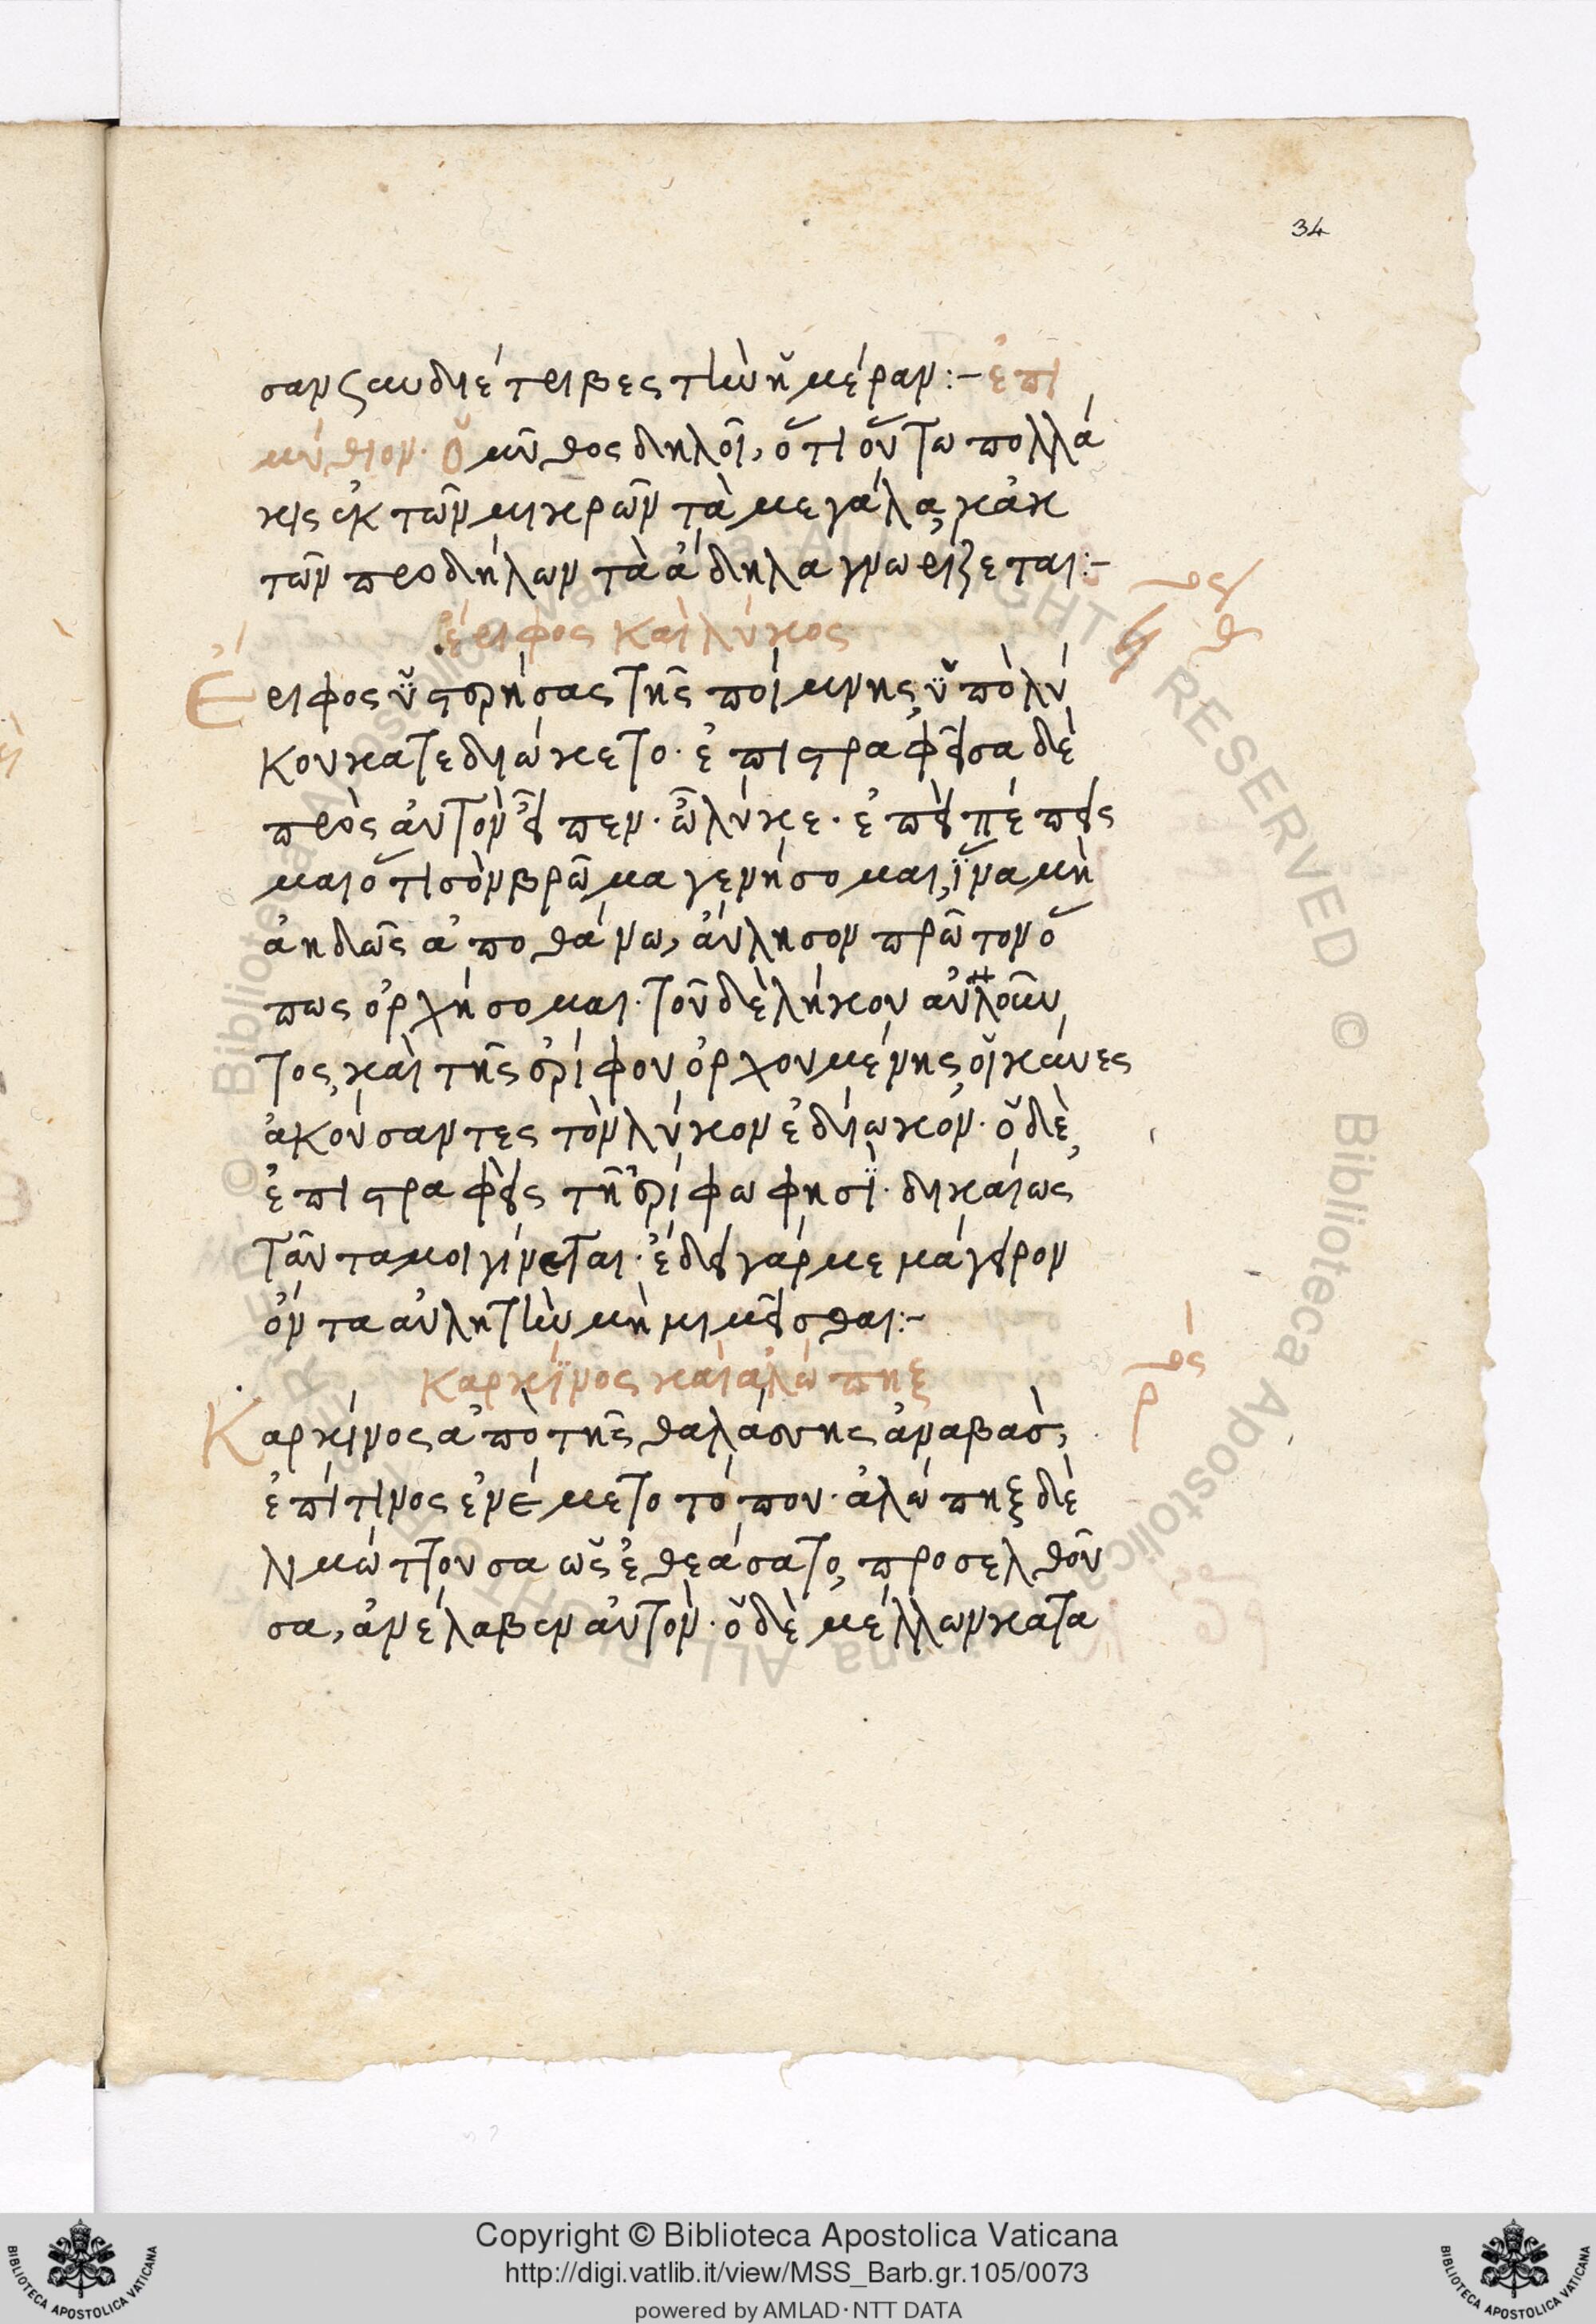 34
σαν ζαυ διέτριβες τὴν ἡμέραν :- ἐπι
μύθιον · Ὁ μῦθος δηλοῖ, ὅτι οὕτω πολλά
κις ἐκ τῶν μικρῶν τὰ μεγάλα, κἀκ
τῶν προδήλων τὰ ἄδηλα γνωρίζεται :-
ἔριφος καὶ λύκος
Ἔριφος ὑστερήσας τῆς ποίμνης, ὑπὸ λύ
κου κατεδιώκετο · ἐπιστραφεῖσα δὲ
πρὸς αὐτὸν εἶπεν · ὦ λύκε · ἐπεὶ πέπεις
μαι ὅτι σὸν βρῶμα γενήσομαι, ἵνα μὴ
ἀηδῶς ἀποθάνω, αὔλησον πρῶτον ὅ
πως ὀρχήσομαι · τοῦ δὲ λύκου αὐλοῦν
τος, καὶ τῆς ἐρίφου ὀρχουμένης, οἱ κύνες
ἀκούσαντες τὸν λύκον ἐδίωκον · ὁ δὲ
ἐπιστραφεὶς τῇ ἐρίφω φησὶ · δικαίως
ταῦτα μοι γίνεται · ἔδει γάρ με μάγειρον
ὄντα αὐλητὴν μὴ μιμεῖσθαι :-
Καρκίνος καὶ ἀλώπηξ
Καρκίνος ἀπὸ τῆς θαλάσσης ἀναβὰς,
ἐπί τινος ἐνέμετο τόπου · ἀλώπηξ δὲ
λιμώττουσα ὡς ἐθεάσατο, προσελθοῦ
σα, ἀνέλαβεν αὐτὸν · ὁ δὲ μέλλων κατα
Copyright © Biblioteca Apostolica Vaticana
http://digi.vatlib.it/view/MSS_Barb.gr.105/0073
powered by AMLAD·NTT DATA